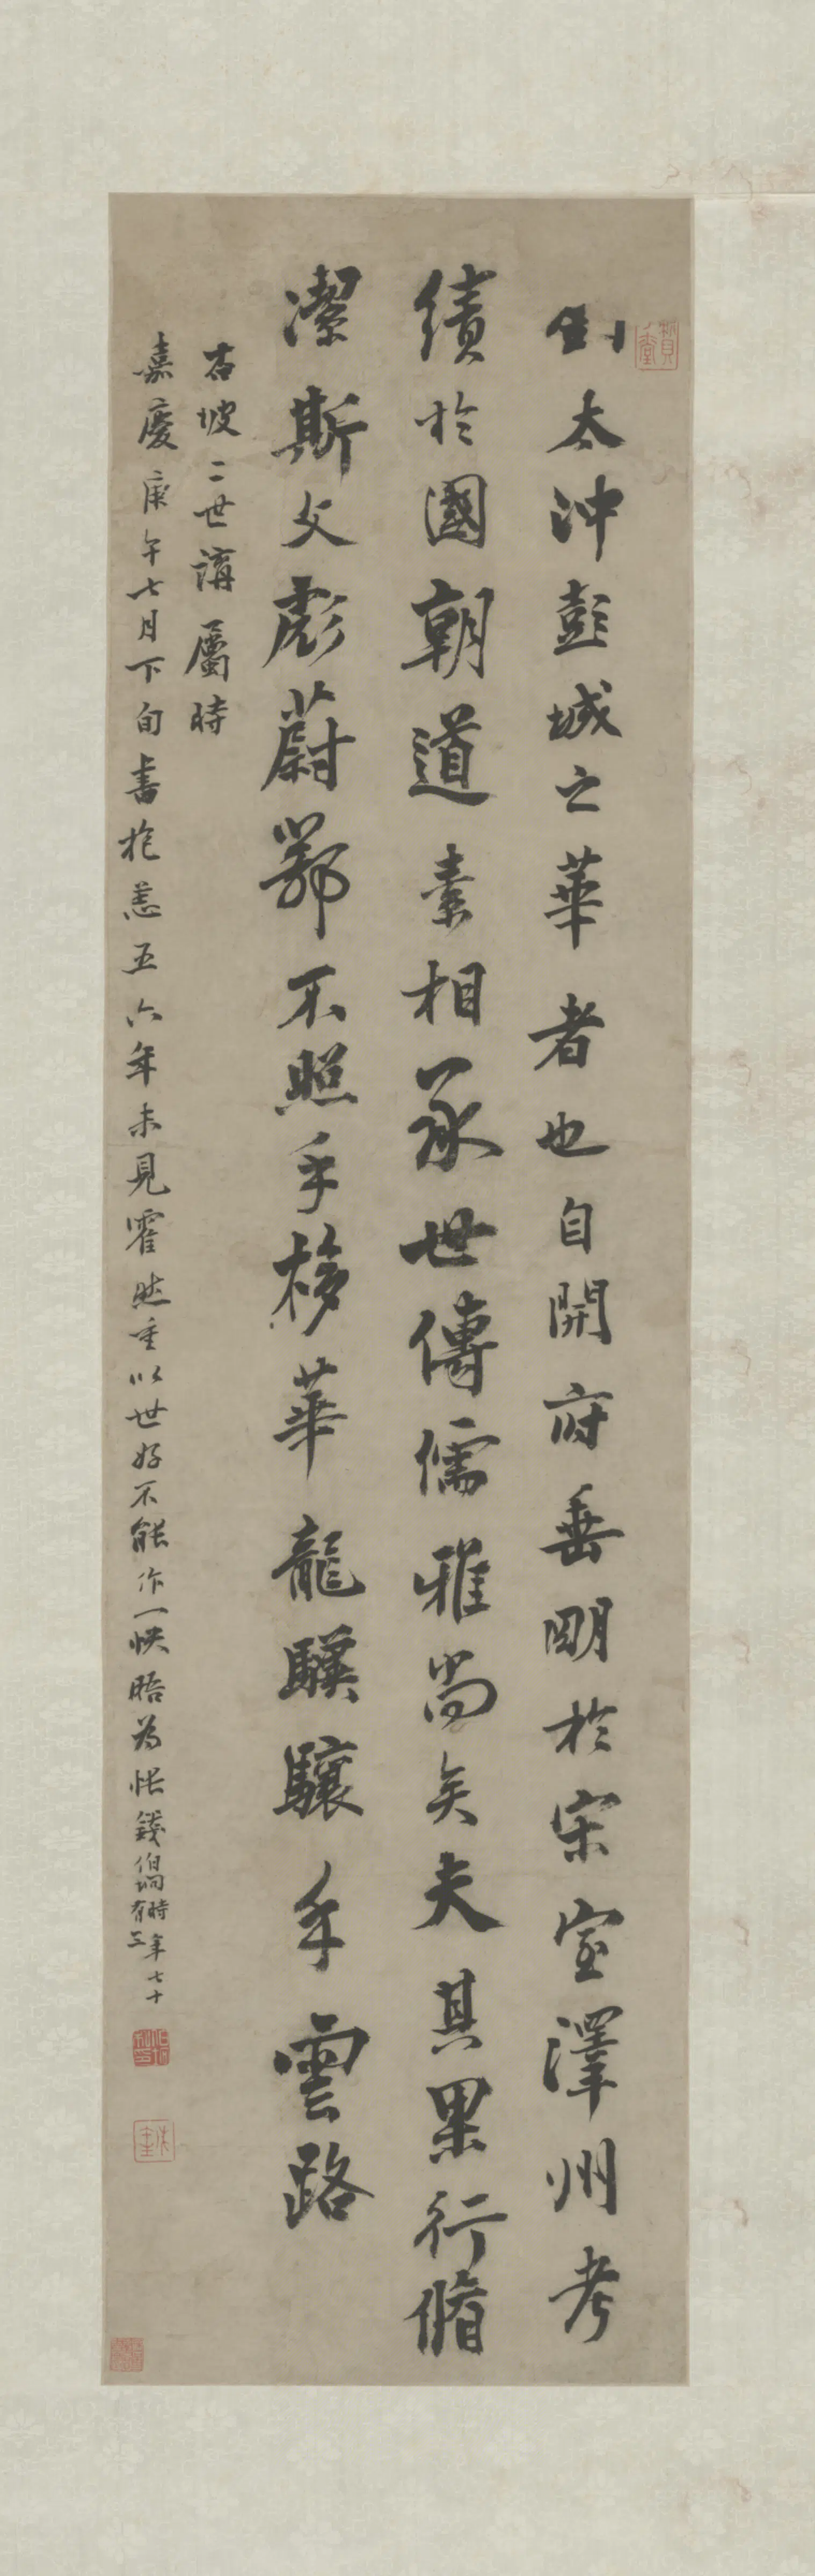 劉太沖彭城之華者也自開府垂明於宋室澤州考
績於國朝道素相承世傳儒雅尚矣夫其果行脩
潔斯文彪蔚鄂不照乎棣華龍驥驤乎雲路
右坡二世講屬時
嘉慶庚午七月下旬書於恙五六年未見霍然重以世好不能作一快晤為悵錢伯坰時年七十有三